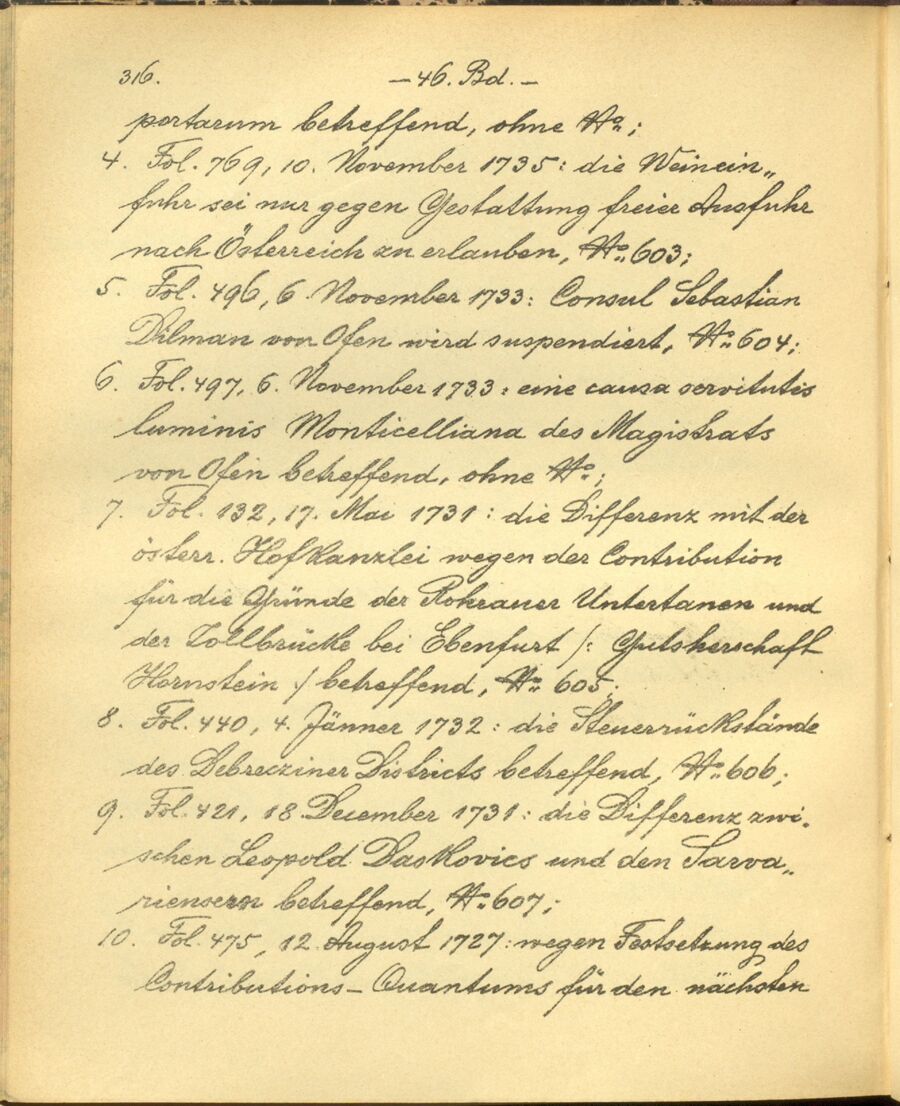 316. – 46. Bd. –
portarum betreffend, ohne No.;
4. Fol. 769, 10. November 1735: die Weinein„
fuhr sei nur gegen Gestattung freier Ausfuhr
nach Österreich zu erlauben, No. 603;
5. Fol. 496, 6. November 1733: Consul Sebastian
Dilman von Ofen wird suspendiert, No. 604;
6. Fol. 497, 6. November 1733: eine causa servitutis
luminis Monticelliana des Magistrats
von Ofen betreffend, ohne No.;
7. Fol. 132, 17. Mai 1731: die Differenz mit der
österr. Hofkanzlei wegen der Contribution
für die Gründe der Rohrauer Untertanen und
der Zollbrücke bei Ebenfurt /: Gutsherschaft
Hornstein :/ betreffend, No. 605;
8. Fol. 440, 4. Jänner 1732: die Steuerrückstände
des Debrecziner Districts betreffend, No. 606;
9. Fol. 421, 18. December 1731: die Differenz zwi„
schen Leopold Daskovics und den Sarva„
riensern betreffend, No. 607;
10. Fol. 475, 12. August 1727: wegen Festsetzung des
Contributions–Quantums für den nächsten